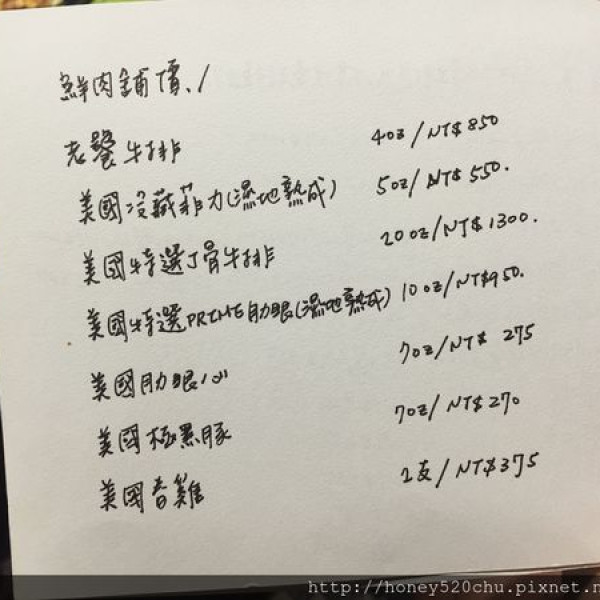 鮮肉鋪價./
老饕牛排 4oz/NT$850
美國冷藏菲力(濕地熟成) 5oz/NT$550.
美國特選丁骨牛排 20oz/NT$1300.
美國特選PRIME肋眼(濕地熟成) 10oz/NT$950.
美國肋眼心 7oz/NT$ 275
美國極黑豚 7oz/NT$270
美國春雞 1支/NT$375
http://honey520chu.pixnet.n